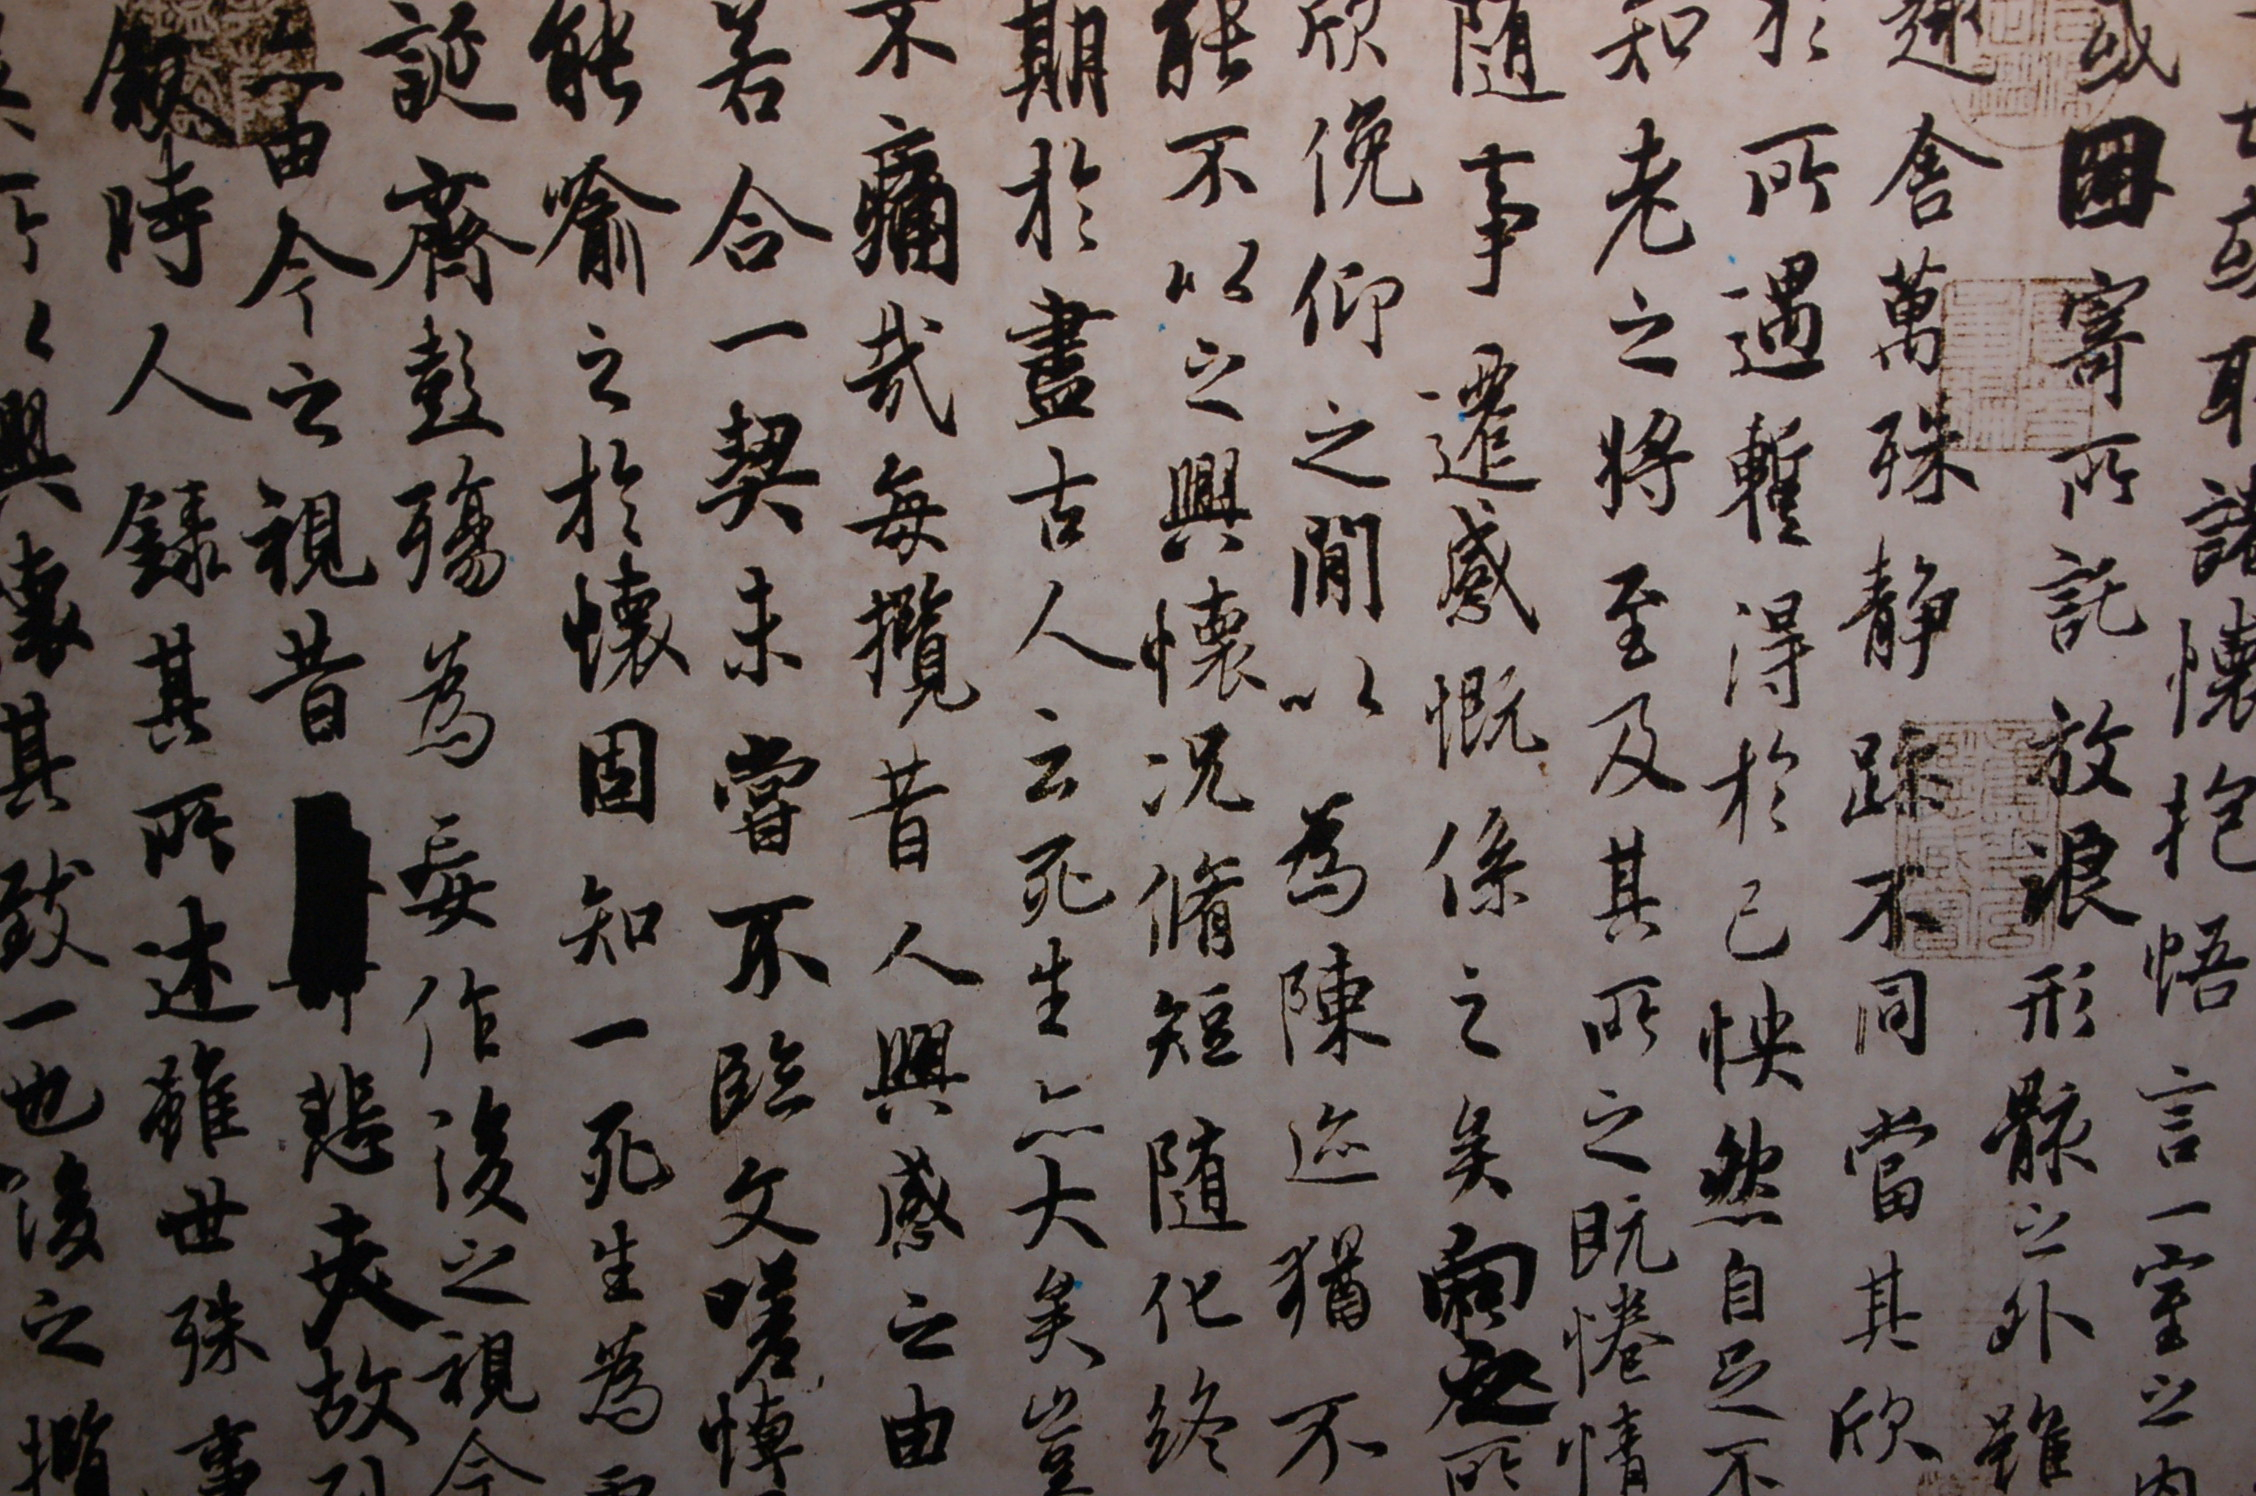 世或取諸懷抱悟言一室之内
或因寄所託放浪形骸之外雖
趣舍萬殊静躁不同當其欣
於所遇蹔得於己怏然自足不
知老之將至及其所之既惓情
随事遷感慨係之矣向之所
欣俛仰之閒以為陳迹猶不
能不以之興懷况脩短随化終
期於盡古人云死生亦大矣豈
不痛哉每攬昔人興感之由
若合一契未嘗不臨文嗟悼
能喻之於懷固知一死生為
誕齊彭殤為妄作後之視今
亦由今之視昔悲夫故列
叙時人録其所述雖世殊事
異所以興懷其致一也後之攬